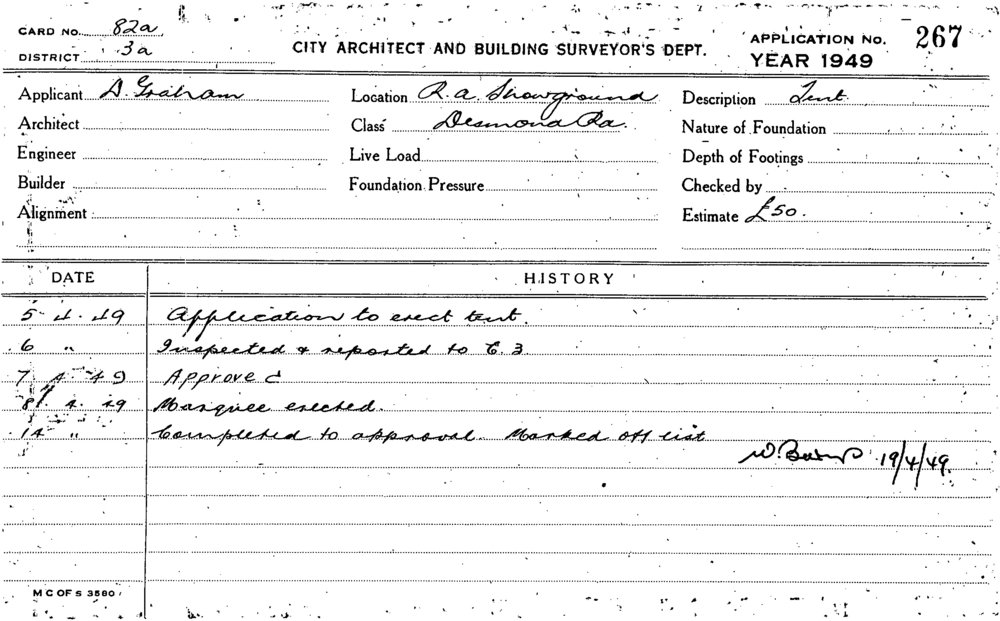 CARD No. 82a
DISTRICT 3a
CITY ARCHITECT AND BUILDING SURVEYOR'S DEPT.
APPLICATION No. 267
YEAR 1949
Applicant D. Graham
Location R. a. Showground
Description Tent.
Architect
Class Desmond Rd.
Nature of Foundation
Engineer
Live Load
Depth of Footings
Builder
Foundation Pressure
Checked by
Alignment
Estimate £50.
DATE HISTORY
5 4. 49 Application to erect tent.
6 " Inspected & reported to C. 3.
7 4 49 Approved
8/. 4. 49 Marquee erected.
14 " Completed to approval. Marked off list
W. 19/4/49.
M C OF S 3580